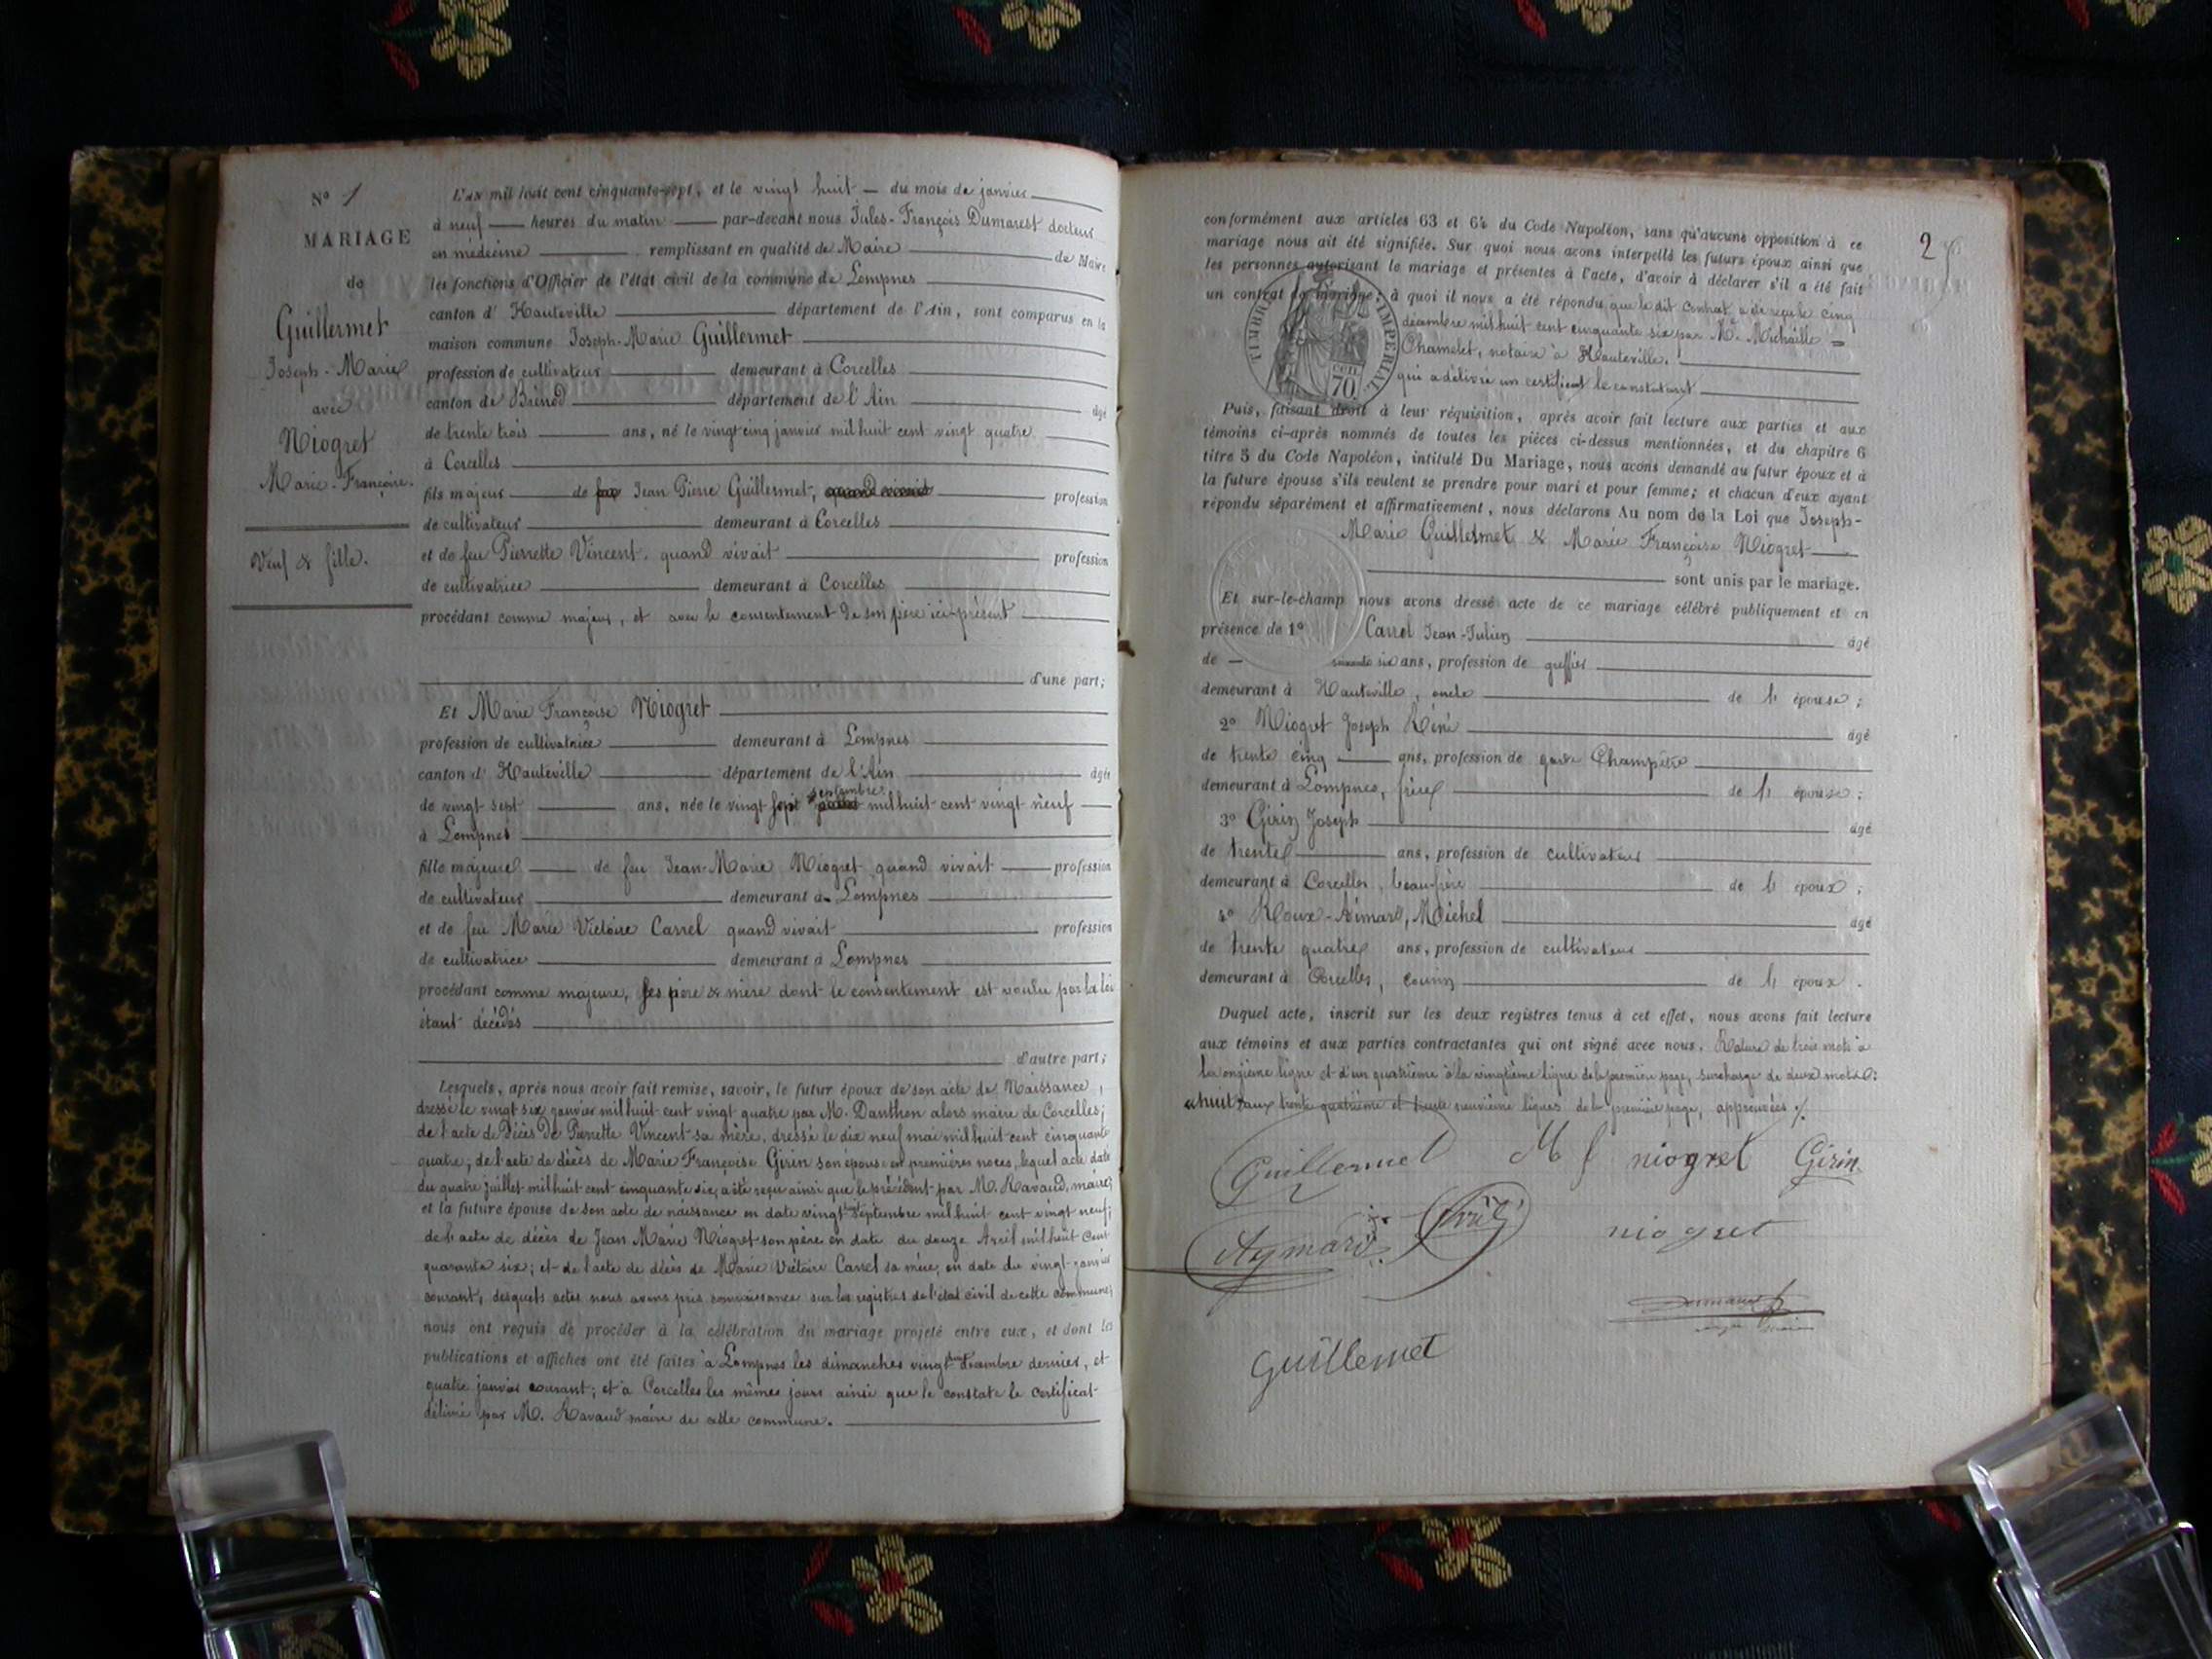 N° 1
MARIAGE
de
Guillermet
Joseph-Marie
avec
Niogret
Marie-Françoise.
Veuf & fille.
L'AN mil huit cent cinquante-sept, et le vingt huit — du mois de janvier
à neuf heures du matin par-devant nous Jules-François Dumarest docteur
en médecine remplissant en qualité de Maire de Maire
les fonctions d'Officier de l'état civil de la commune de Lompnes
canton d'Hauteville département de l'Ain, sont comparus en la
maison commune Joseph-Marie Guillermet
profession de cultivateur demeurant à Corcelles
canton de Brénod département de l'Ain âgé
de trente trois ans, né le vingt cinq janvier mil huit cent vingt quatre
à Corcelles
fils majeur de Jean Pierre Guillermet, profession
de cultivateur demeurant à Corcelles
et de feu Pierrette Vincent. quand vivait profession
de cultivatrice demeurant à Corcelles
procédant comme majeur, et avec le consentement de son père ici présent
d'une part;
Et Marie Françoise Niogret
profession de cultivatrice demeurant à Lompnes
canton d'Hauteville département de l'Ain âgée
de vingt sept ans, née le vingt sept septembre mil huit cent vingt neuf
à Lompnes
fille majeure de feu Jean-Marie Niogret quand vivait profession
de cultivateur demeurant à Lompnes
et de feu Marie Victoire Carrel quand vivait profession
de cultivatrice demeurant à Lompnes
procédant comme majeure, ses père & mère dont le consentement est voulu par la loi
étant décédés
d'autre part;
Lesquels, après nous avoir fait remise, savoir, le futur époux de son acte de Naissance,
dressé le vingt six janvier mil huit cent vingt quatre par M. Danthon alors maire de Corcelles;
de l'acte de Décès de Pierrette Vincent sa mère, dressé le dix neuf mai mil huit cent cinquante
quatre; de l'acte de décès de Marie Françoise Girin son épouse en premières noces, lequel acte daté
du quatre juillet mil huit cent cinquante six, a été reçu ainsi que le précédent par M. Ravaud, maire;
et la future épouse de son acte de naissance en date vingt huit septembre mil huit cent vingt neuf;
de l'acte de décès de Jean Marie Niogret son père en date du douze Avril mil huit cent
quarante six; et de l'acte de décès de Marie Victoire Carrel sa mère, en date du vingt janvier
courant, desquels actes nous avons pris connaissance sur les registres de l'état civil de cette commune,
nous ont requis de procéder à la célébration du mariage projeté entre eux, et dont les
publications et affiches ont été faites à Lompnes les dimanches vingt huit décembre dernier, et
quatre janvier courant; et à Corcelles les mêmes jours ainsi que le constate le certificat
délivré par M. Ravaud maire de cette commune.
2
conformément aux articles 63 et 64 du Code Napoléon, sans qu'aucune opposition à ce
mariage nous ait été signifiée. Sur quoi nous avons interpellé les futurs époux ainsi que
les personnes autorisant le mariage et présentes à l'acte, d'avoir à déclarer s'il a été fait
un contrat de mariage; à quoi il nous a été répondu que le dit Contrat a été reçu le cinq
décembre mil huit cent cinquante six par Me Michaille
Chamelet, notaire à Hauteville.
qui a délivré un certificat le constatant
TIMBRE IMPERIAL
CEN. 70
Puis, faisant droit à leur réquisition, après avoir fait lecture aux parties et aux
témoins ci-après nommés de toutes les pièces ci-dessus mentionnées, et du chapitre 6
titre 5 du Code Napoléon, intitulé Du Mariage, nous avons demandé au futur époux et à
la future épouse s'ils veulent se prendre pour mari et pour femme; et chacun d'eux ayant
répondu séparément et affirmativement, nous déclarons Au nom de la Loi que Joseph-
Marie Guillermet & Marie Françoise Niogret
sont unis par le mariage.
Et sur-le-champ nous avons dressé acte de ce mariage célébré publiquement et en
présence de 1° Carrel Jean-Julien âgé
de soixante six ans, profession de greffier
demeurant à Hauteville, oncle de l'épouse;
2° Niogret Joseph Réné âgé
de trente cinq ans, profession de garde Champêtre
demeurant à Lompnes, frère de l'épouse;
3° Girin Joseph âgé
de trente ans, profession de cultivateur
demeurant à Corcelles, beau-frère de l'époux;
4° Roux-Aimard, Michel âgé
de trente quatre ans, profession de cultivateur
demeurant à Corcelles, cousin de l'époux.
Duquel acte, inscrit sur les deux registres tenus à cet effet, nous avons fait lecture
aux témoins et aux parties contractantes qui ont signé avec nous. Rature de trois mots à
la onzième ligne et d'un quatrième à la vingtième ligne de la première page, surcharge de deux mots
huit aux trente quatrième et trente neuvième lignes de la première page, approuvées
Guillermet M f niogret Girin
Aymard niogret
Guillermet